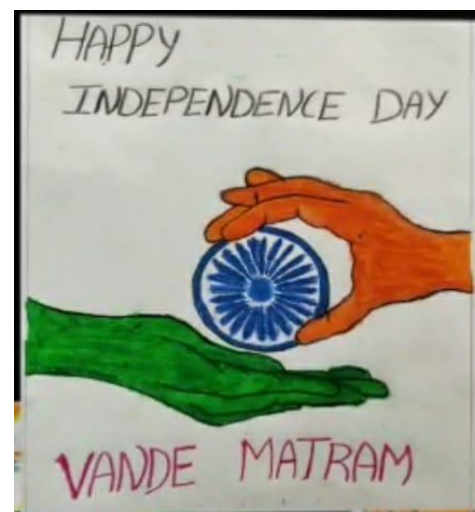 HAPPY
INDEPENDENCE DAY
VANDE MATRAM